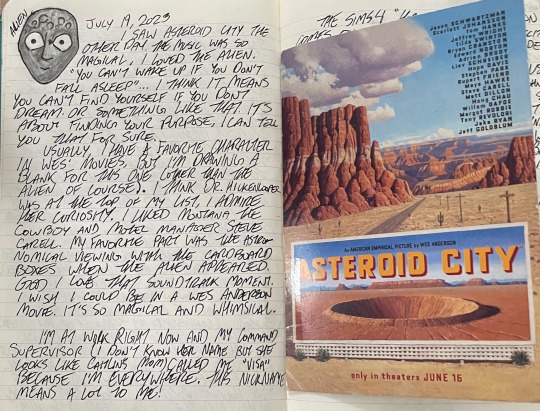 ALIEN
JULY 19, 2023
I SAW ASTEROID CITY THE
OTHER DAY. THE MUSIC WAS SO
MAGICAL. I LOVED THE ALIEN.
"YOU CAN'T WAKE UP IF YOU DON'T
FALL ASLEEP"... I THINK IT MEANS
YOU CAN'T FIND YOURSELF IF YOU DON'T
DREAM. OR SOMETHING LIKE THAT. IT'S
ABOUT FINDING YOUR PURPOSE, I CAN TELL
YOU THAT FOR SURE.
USUALLY I HAVE A FAVORITE CHARACTER
IN WES' MOVIES, BUT I'M DRAWING A
BLANK FOR THIS ONE (OTHER THAN THE
ALIEN OF COURSE). I THINK DR. HICKENLOOPER
WAS AT THE TOP OF MY LIST, I ADMIRE
HER CURIOSITY. I LIKED MONTANA THE
COWBOY AND MOTEL MANAGER STEVE
CARELL. MY FAVORITE PART WAS THE ASTRO-
NOMICAL VIEWING WITH THE CARDBOARD
BOXES WHEN THE ALIEN APPEARED.
GOD I LOVE THAT SOUNDTRACK MOMENT.
I WISH I COULD BE IN A WES ANDERSON
MOVIE. IT'S SO MAGICAL AND WHIMSICAL.
I'M AT WORK RIGHT NOW AND MY COMMAND
SUPERVISOR (I DON'T KNOW HER NAME BUT SHE
LOOKS LIKE CAITLINS MOM) CALLED ME "VISA"
BECAUSE I'M EVERYWHERE. THIS NICKNAME
MEANS A LOT TO ME!
THE SIMS 4
Jason SCHWARTZMAN
Scarlett JOHANSSON
Tom HANKS
Jeffrey WRIGHT
Tilda SWINTON
Bryan CRANSTON
Edward NORTON
Adrien BRODY
Liev SCHREIBER
Hope DAVIS
Stephen PARK
Rupert FRIEND
Maya HAWKE
Steve CARELL
Matt DILLON
Hong CHAU
Willem DAFOE
Margot ROBBIE
Tony REVOLORI
Jake RYAN
Jeff GOLDBLUM
An AMERICAN EMPIRICAL PICTURE by WES ANDERSON
ASTEROID CITY
only in theaters JUNE 16